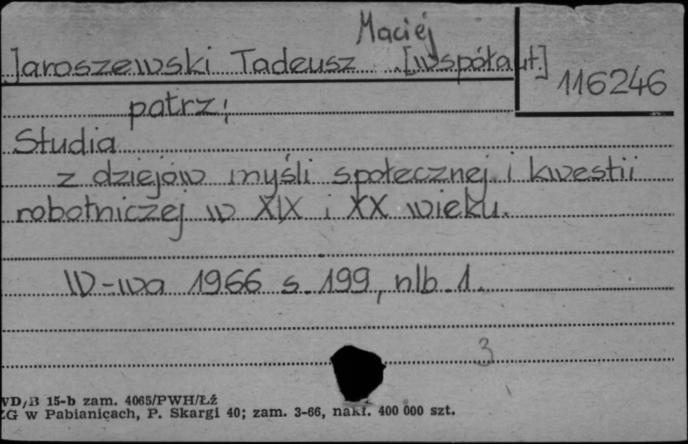 Maciej
Jaroszewski Tadeusz [współaut.]
116246
patrz:
Studia
z dziejów myśli społecznej i kwestii
robotniczej w XIX i XX wieku.
W-wa 1966 s. 199, nlb. 1.
3
WD/B 15-b zam. 4065/PWH/Łź
ZG w Pabianicach, P. Skargi 40; zam. 3-66, nakł. 400 000 szt.